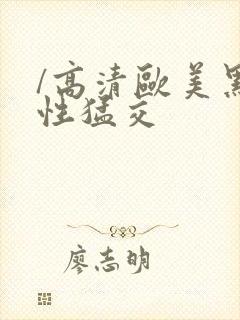 /高清歐美黑
性猛交
廖志明